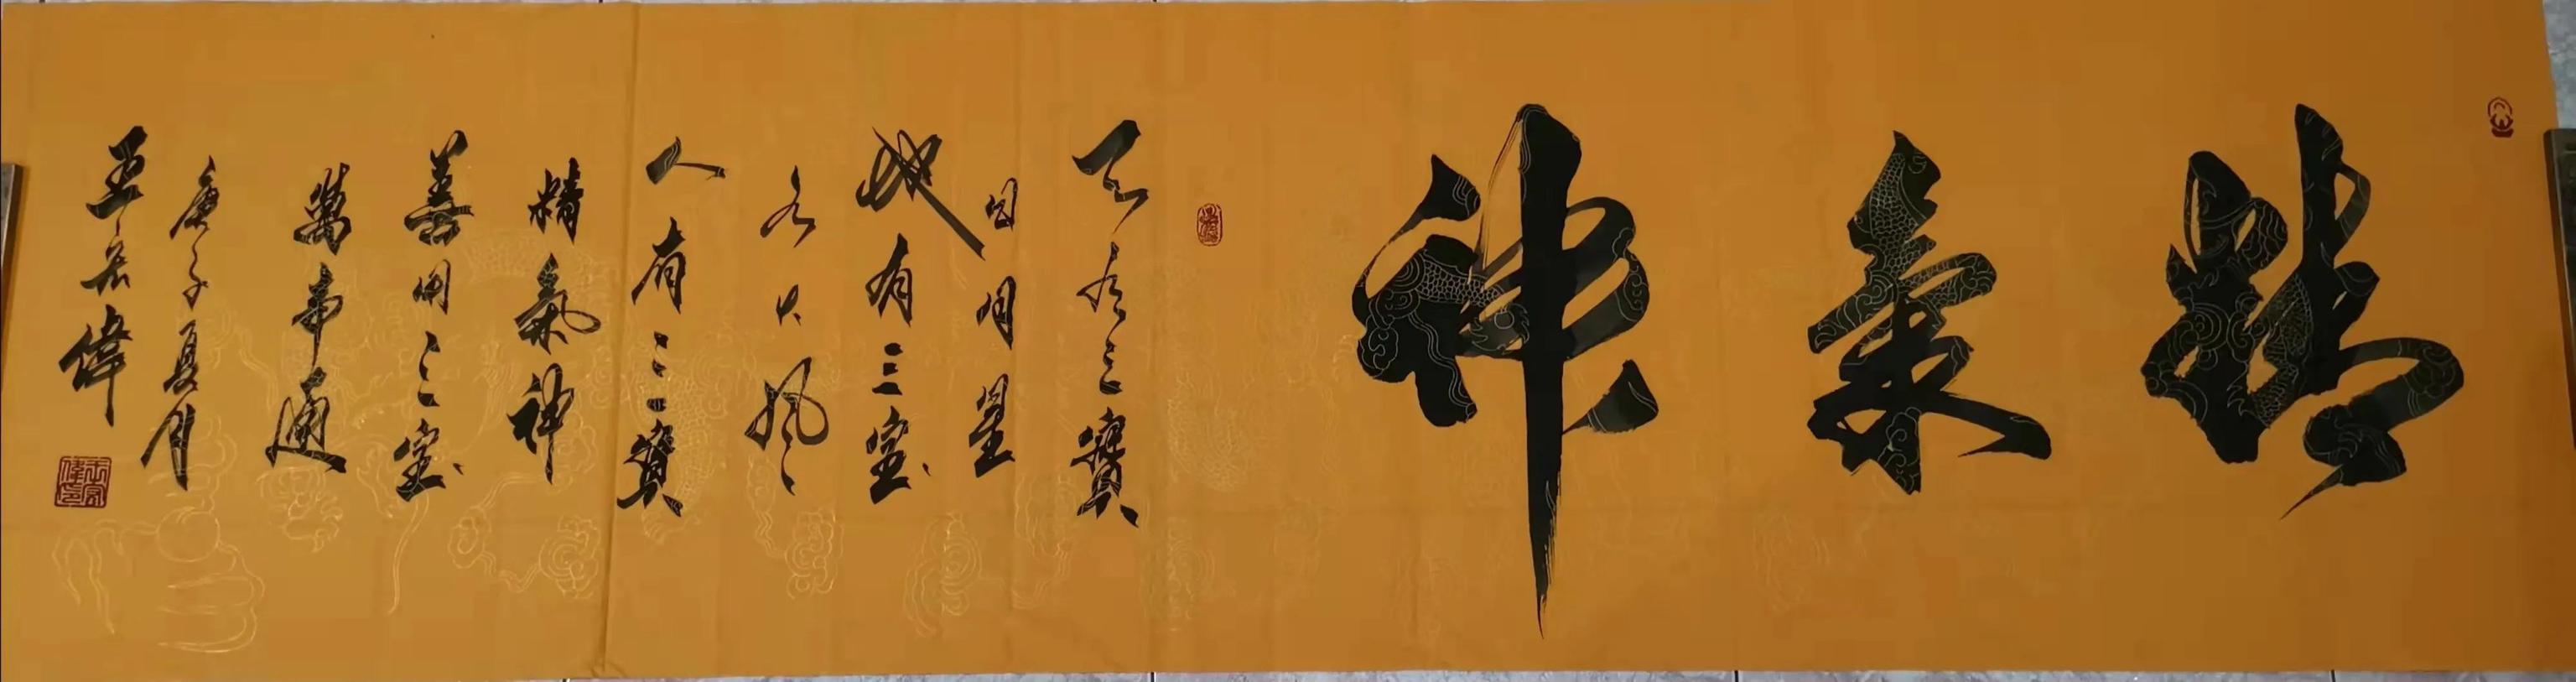 精氣神
天有三寶
日月星
地有三寶
水火風
人有三寶
精氣神
善用三宝
萬事通
庚子夏月
王宏偉